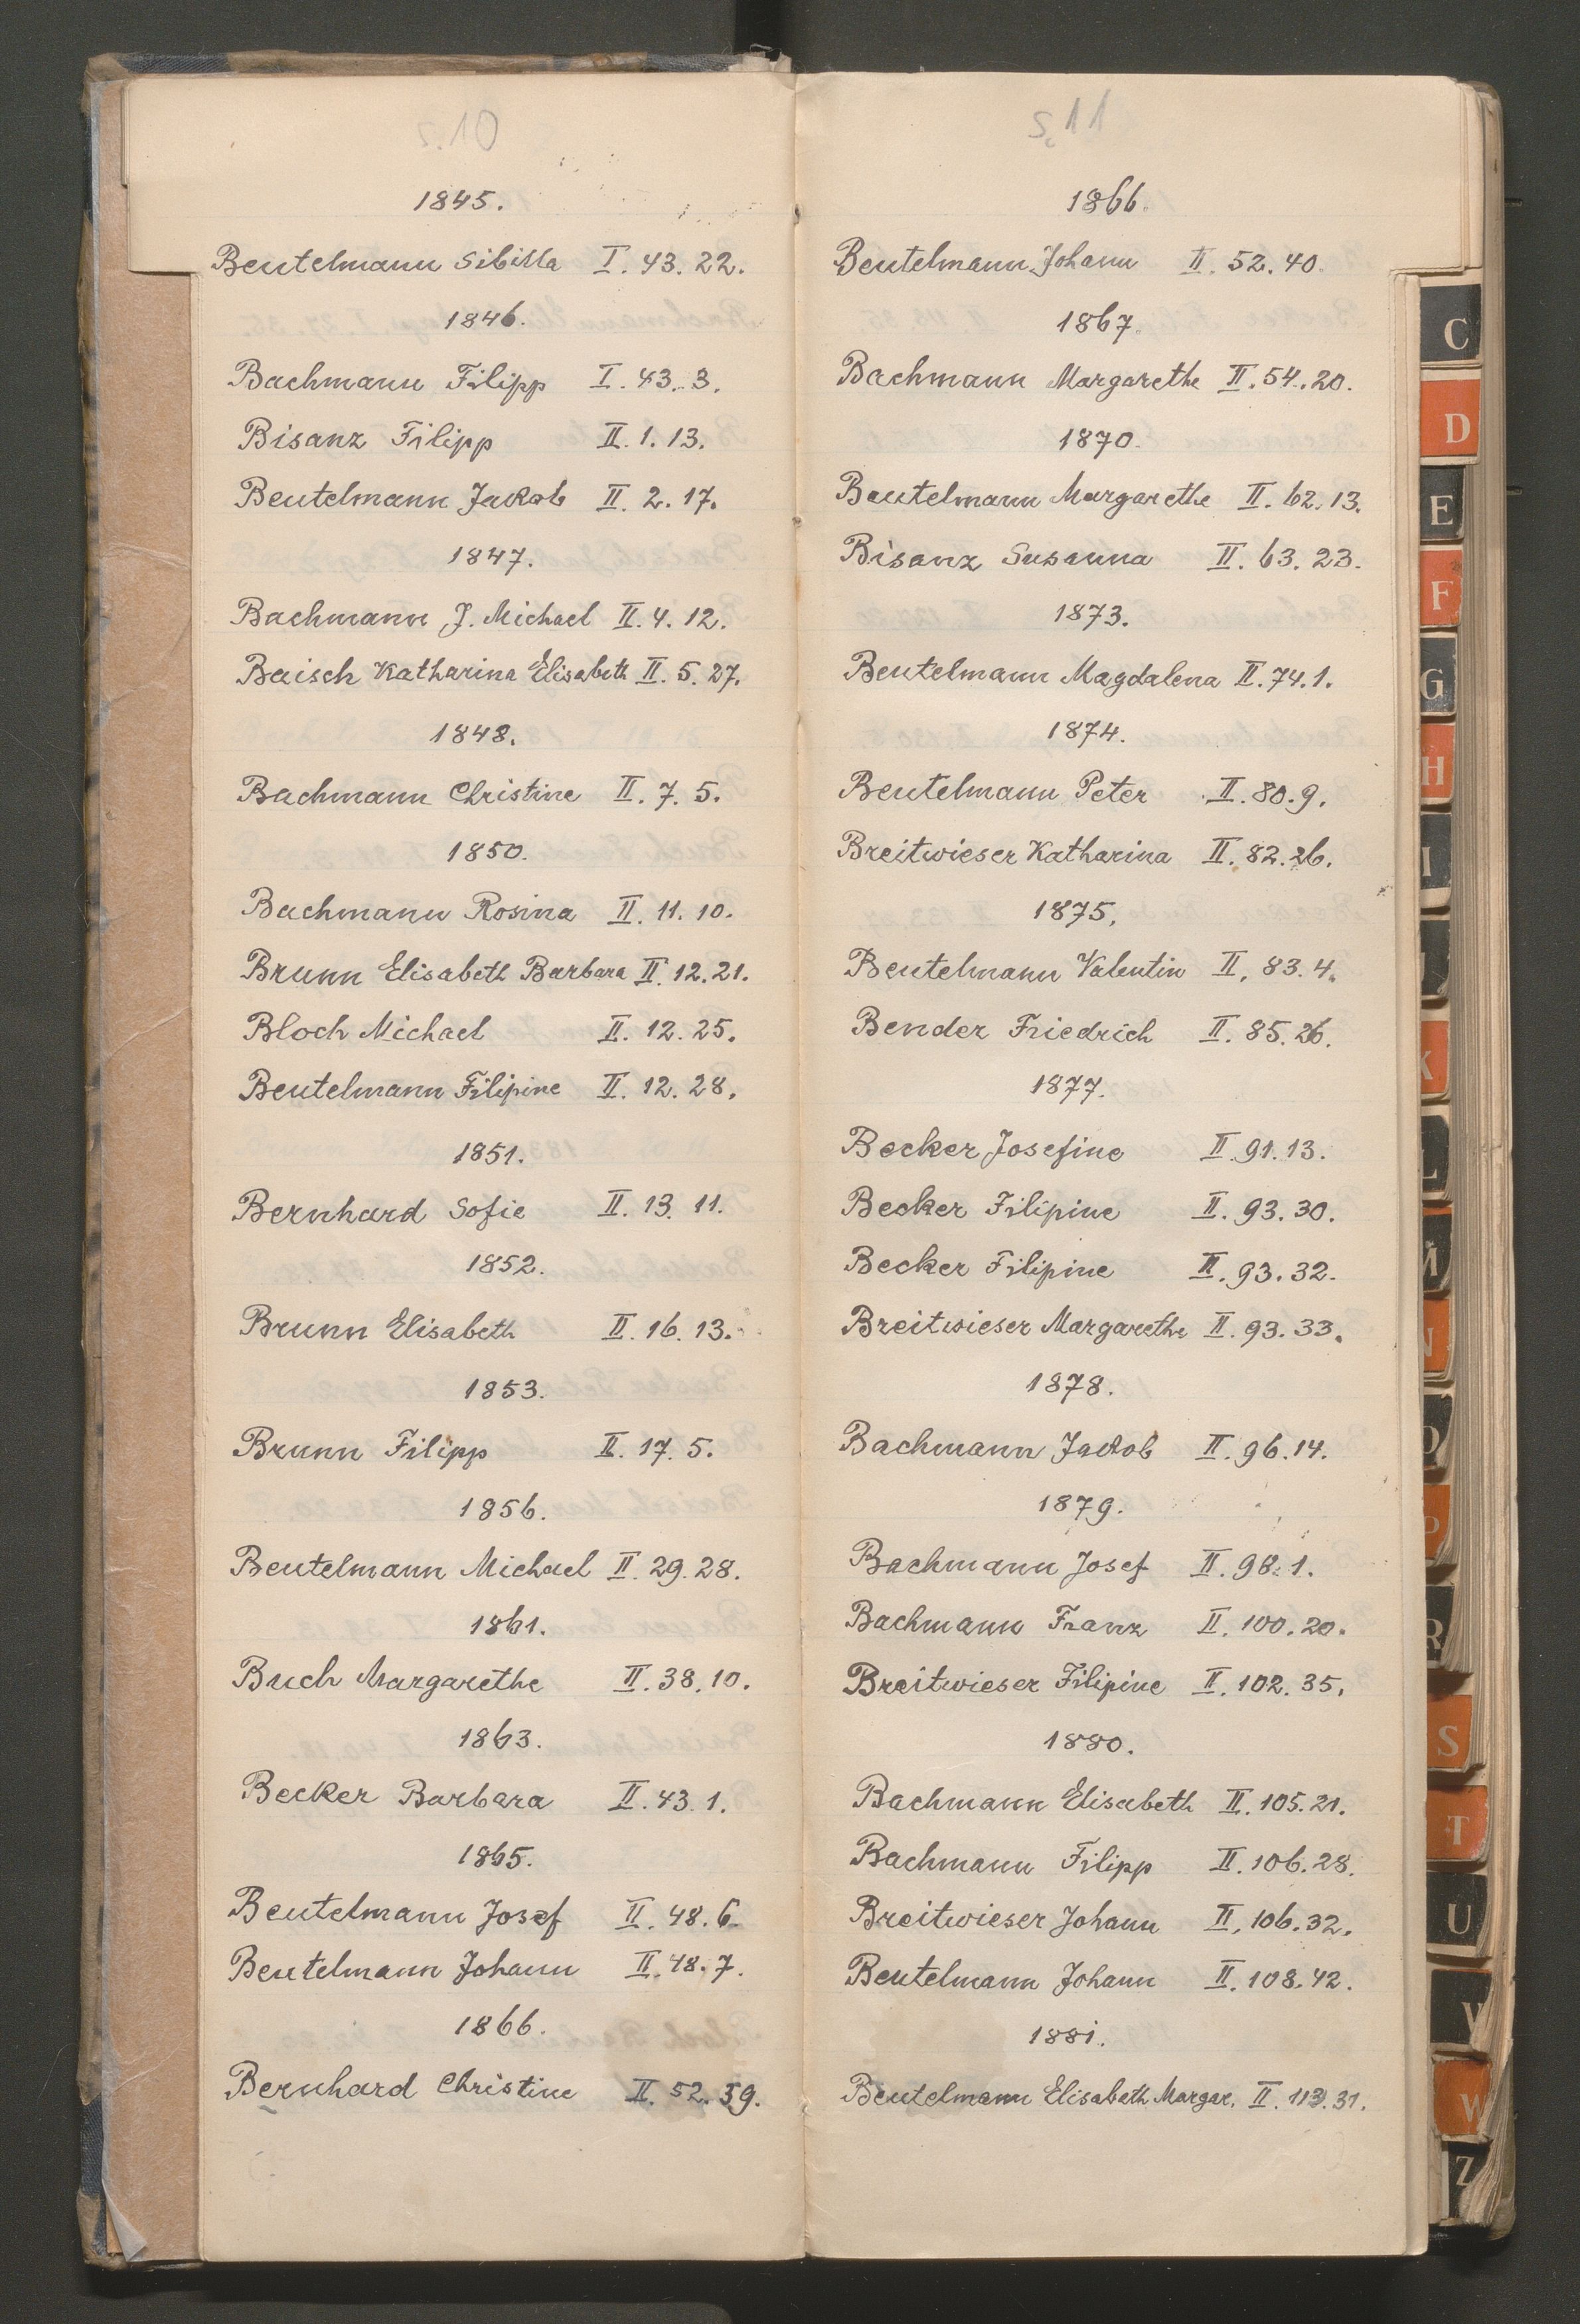 S.10
1845.
Beutelmann Sibilla I. 43. 22.
1846.
Bachmann Filipp I. 43. 3.
Bisanz Filipp II. 1. 13.
Beutelmann Jakob II. 2. 17.
1847.
Bachmann J. Michael II. 4. 12.
Baisch Katharina Elisabeth II. 5. 27.
1848.
Bachmann Christine II. 7. 5.
1850.
Bachmann Rosina II. 11. 10.
Brunn Elisabeth Barbara II. 12. 21.
Bloch Michael II. 12. 25.
Beutelmann Filipine II. 12. 28.
1851.
Bernhard Sofie II. 13. 11.
1852.
Brunn Elisabeth II. 16. 13.
1853.
Brunn Filipp II. 17. 5.
1856.
Beutelmann Michael II. 29. 28.
1861.
Buch Margarethe II. 38. 10.
1863.
Becker Barbara II. 43. 1.
1865.
Beutelmann Josef II. 48. 6.
Beutelmann Johann II. 48. 7.
1866.
Bernhard Christine II. 52. 39.
S.11
1866.
Beutelmann Johann II. 52. 40.
1867.
Bachmann Margarethe II. 54. 20.
1870.
Beutelmann Margarethe II. 62. 13.
Bisanz Susanna II. 63. 23.
1873.
Beutelmann Magdalena II. 74. 1.
1874.
Beutelmann Peter II. 80. 9.
Breitwieser Katharina II. 82. 26.
1875.
Beutelmann Valentin II. 83. 4.
Bender Friedrich II. 85. 26.
1877.
Becker Josefine II. 91. 13.
Becker Filipine II. 93. 30.
Becker Filipine II. 93. 32.
Breitwieser Margarethe II. 93. 33.
1878.
Bachmann Jakob II. 96. 14.
1879.
Bachmann Josef II. 98. 1.
Bachmann Franz II. 100. 20.
Breitwieser Filipine II. 102. 35.
1880.
Bachmann Elisabeth II. 105. 21.
Bachmann Filipp II. 106. 28.
Breitwieser Johann II. 106. 32.
Beutelmann Johann II. 108. 42.
1881.
Beutelmann Elisabeth Margar. II. 113. 31.
C
D
E
F
G
H
I
K
L
M
N
O
P
R
S
T
U
V
W
Z